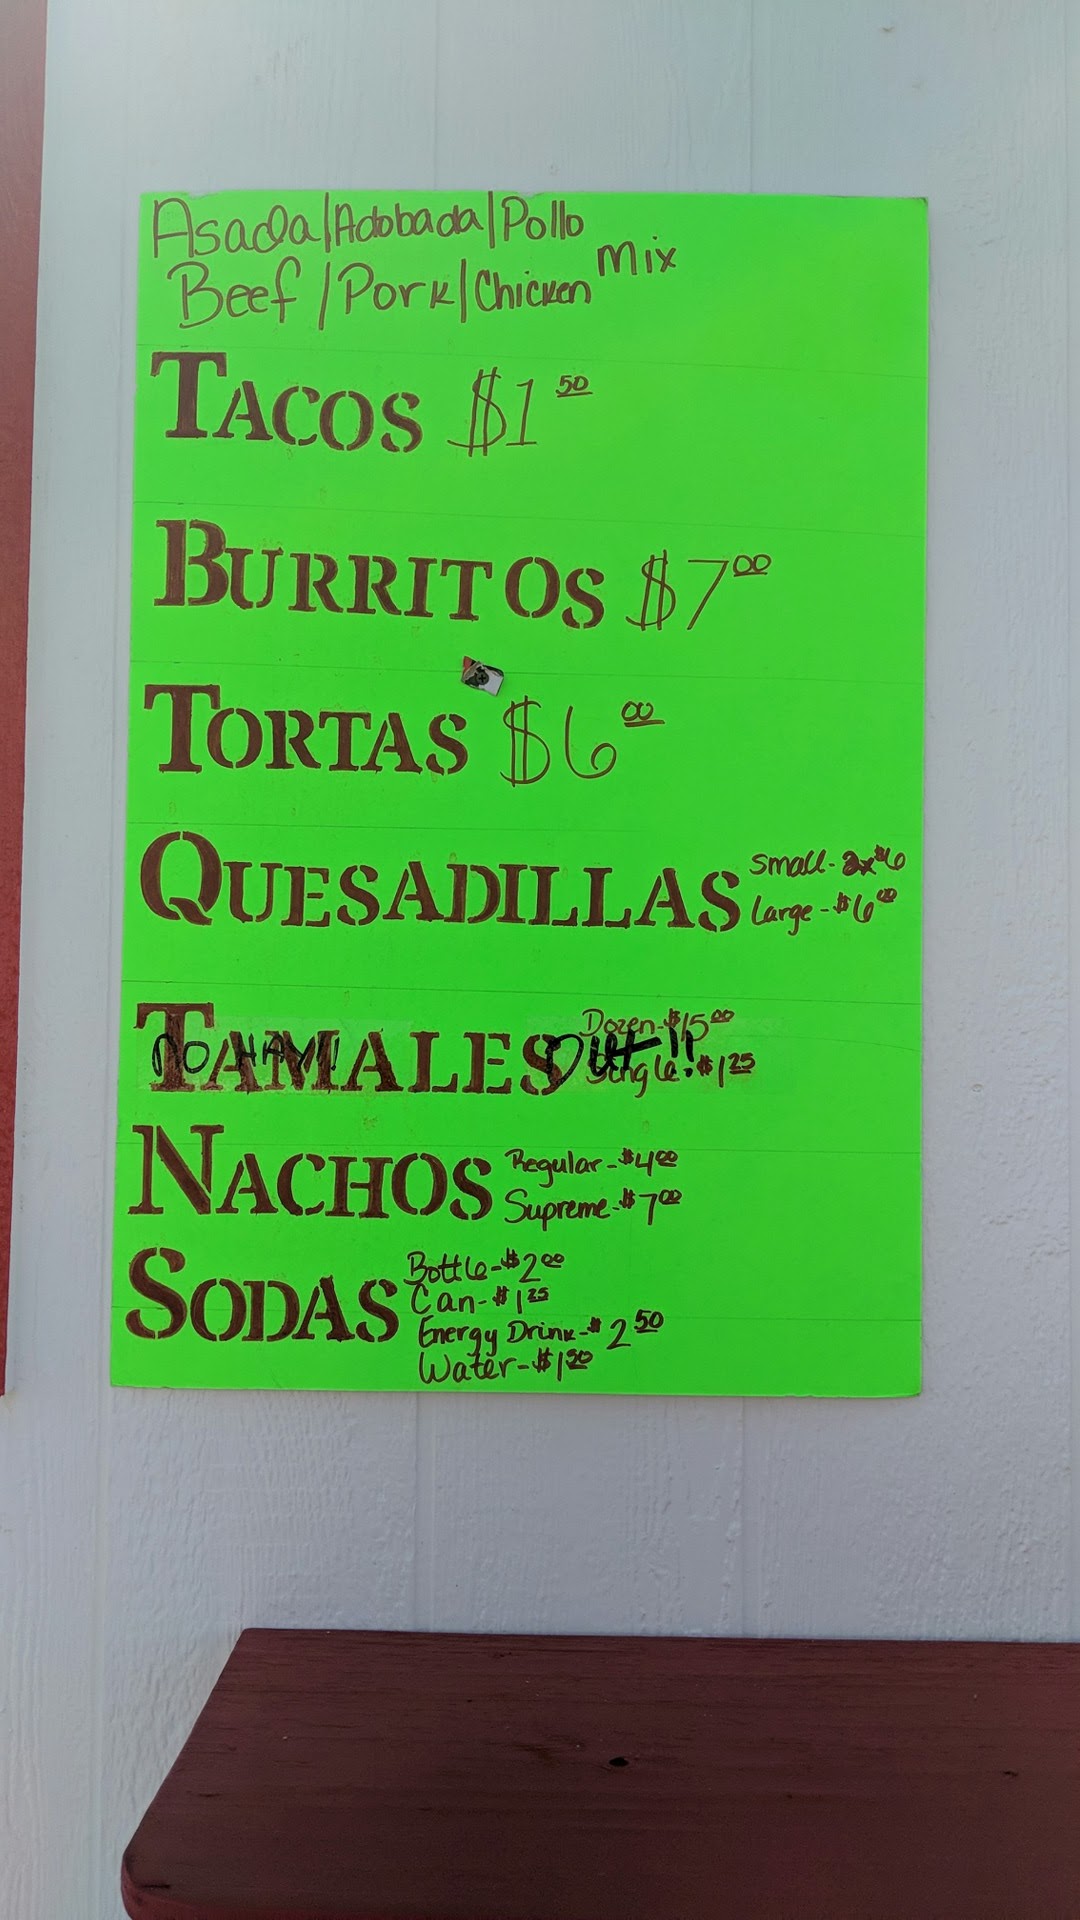 Asada/Adobada/Pollo
Beef/Pork/Chicken Mix
TACOS $1 50
BURRITOS $7 00
TORTAS $6 00
QUESADILLAS
Small- 2x$6
Large-$6 00
TAMALES
NO HAY!!
OUT!!
Dozen-$15 00
Single-$1 25
NACHOS
Regular-$4 00
Supreme-$7 00
SODAS
Bottle-$2 00
Can-$1 25
Energy Drink-$2 50
Water-$1 50